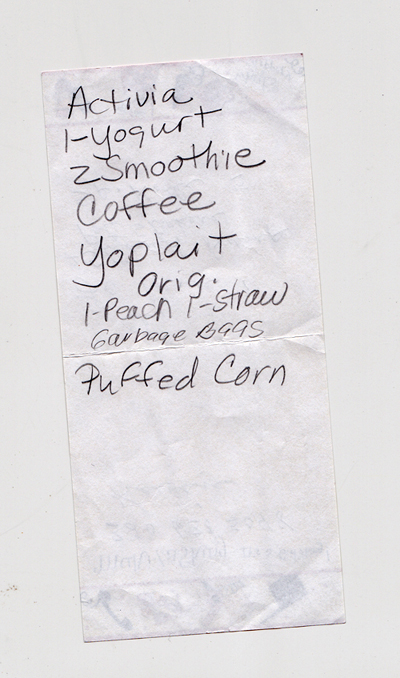 Activia
1-Yogurt
2 Smoothie
Coffee
Yoplait
Orig.
1-Peach 1-straw
Garbage Bags
Puffed Corn